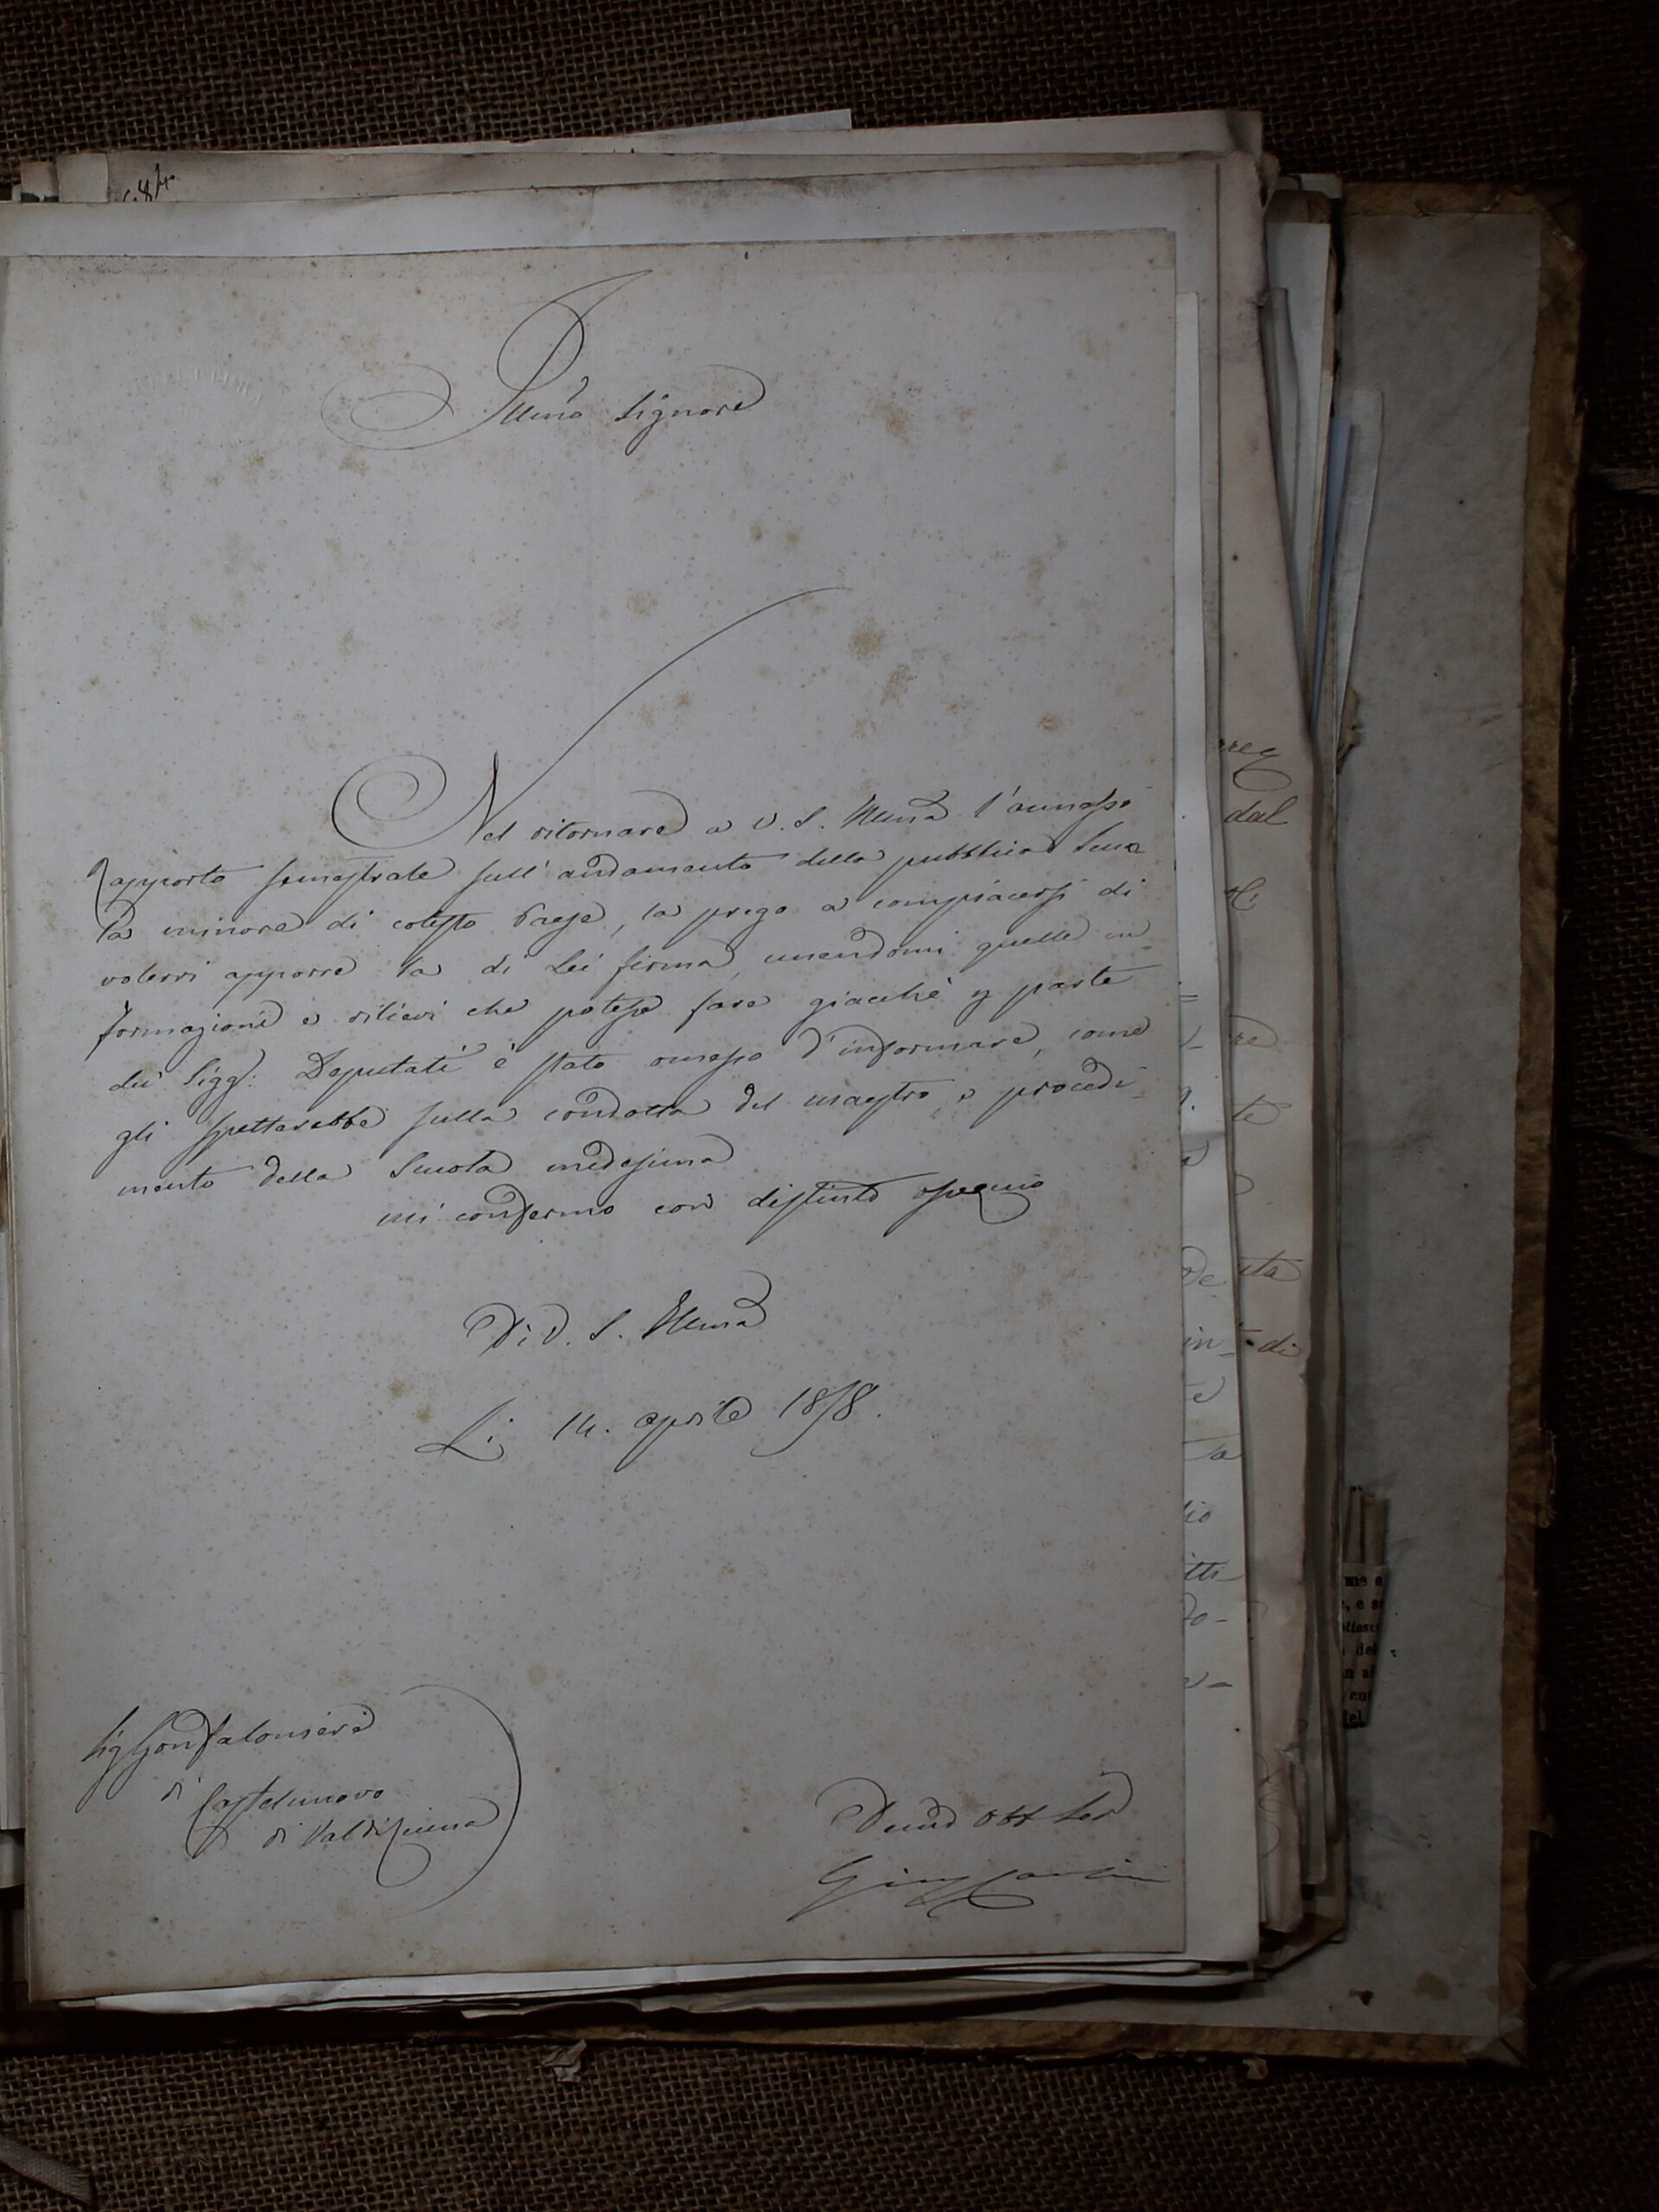 Illmo Signore
Nel ritornare a V. S. Illma l'annesso
rapporto semestrale sull'andamento della pubblica Scuo
la minore di cotesto Paese, la prego a compiacersi di
volervi apporre la di Lei firma, unendomi quelle in=
formazioni e rilievi che potesse fare giacchè p parte
dei Sigg: Deputati è stato omesso d'informare, come
gli spetterebbe sulla condotta del maestro, e procedi=
mento della Scuola medesima
mi confermo con distinto ossequio
Di V. S. Illma
Li 14. aprile 1858.
Sig Gonfaloniere
di Castelnuovo
di Val di Cecina
Devmo Obb Ser